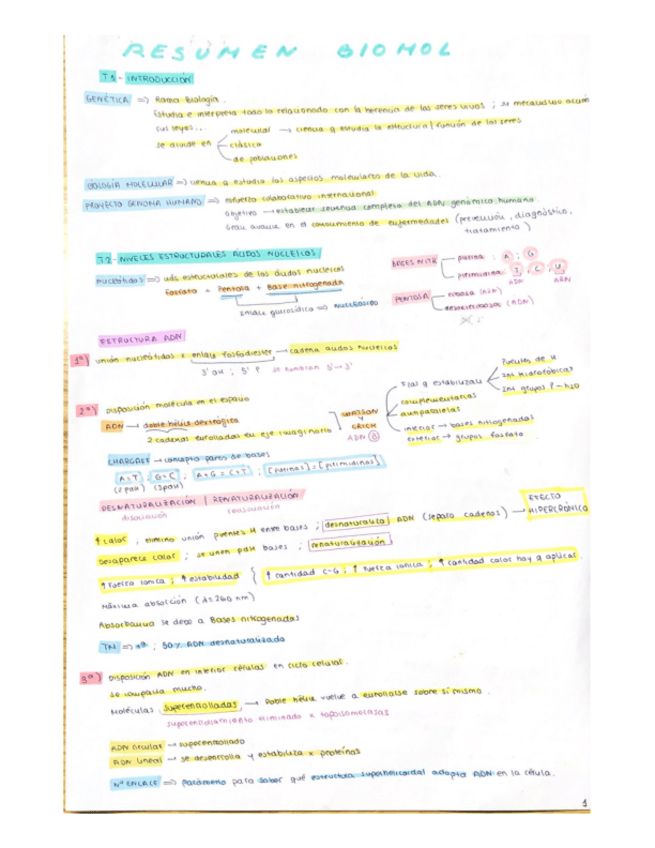 RESUMEN BIOMOL
T.1- INTRODUCCIÓN
GENÉTICA => Rama Biología.
Estudia e interpreta todo lo relacionado con la herencia de los seres vivos ; su mecanismo acción
sus leyes...
se divide en
molecular → ciencia q estudia la estructura / función de los seres
clásica
de poblaciones
BIOLOGÍA MOLECULAR => ciencia q estudia los aspectos moleculares de la vida.
PROYECTO GENOMA HUMANO => esfuerzo colaborativo internacional
objetivo → establecer secuencia completa del ADN genómico humano
Gran avance en el conocimiento de enfermedades (prevención, diagnóstico,
tratamiento)
T.2- NIVELES ESTRUCTURALES ÁCIDOS NUCLEICOS
nucleótidos => uds estructurales de los ácidos nucleicos
Fosfato + Pentosa + Base nitrogenada
enlace glucosídico => NUCLEÓSIDO
BASES NITR
purina : A ; G
pirimidina : T, C, U
ADN ARN
PENTOSA
ribosa (ARN)
desoxirribosa (ADN)
ESTRUCTURA ADN
1ª) unión nucleótidos x enlace fosfodiester → cadena ácidos nucleicos
3' OH ; 5' P se nombran 5' → 3'
2ª) Disposición molécula en el espacio
ADN → doble hélice dextrógira
2 cadenas enrolladas en eje imaginario
WATSON
Y
CRICK
ADN (B)
Fzas q estabilizan
Puentes de H
Inz hidrofóbicas
Inz grupos P-H2O
complementarias
antiparalelas
interior → bases nitrogenadas
exterior → grupos fosfato
CHARGAFF → concepto pares de bases
A=T ; G=C ; A+G = C+T ; [purinas] = [pirimidinas]
(2 pdH) (3pdH)
DESNATURALIZACIÓN / RENATURALIZACIÓN
disociación reasociación
↑ calor ; elimino unión puentes H entre bases ; desnaturaliza ADN (separo cadenas) →
EFECTO
HIPERCRÓMICO
Desaparece calor ; se unen pdH bases ; renaturalización
↑ fuerza iónica ; ↑ estabilidad { ↑ cantidad C-G ; ↑ fuerza iónica ; ↑ cantidad calor hay q aplicar.
Máxima absorción (λ=260 nm)
Absorbancia se debe a Bases nitrogenadas
TM => Tª ; 50% ADN desnaturalizado
3ª) Disposición ADN en interior células en ciclo celular.
se compacta mucho.
Moléculas superenrolladas → Doble hélice vuelve a enrollarse sobre sí misma.
superenrollamiento eliminado x topoisomerasas
ADN circular → superenrollado
ADN lineal → se desenrolla y estabiliza x proteínas
Nº ENLACE => parámetro para saber qué estructura superhelicoidal adopta ADN en la célula.
1